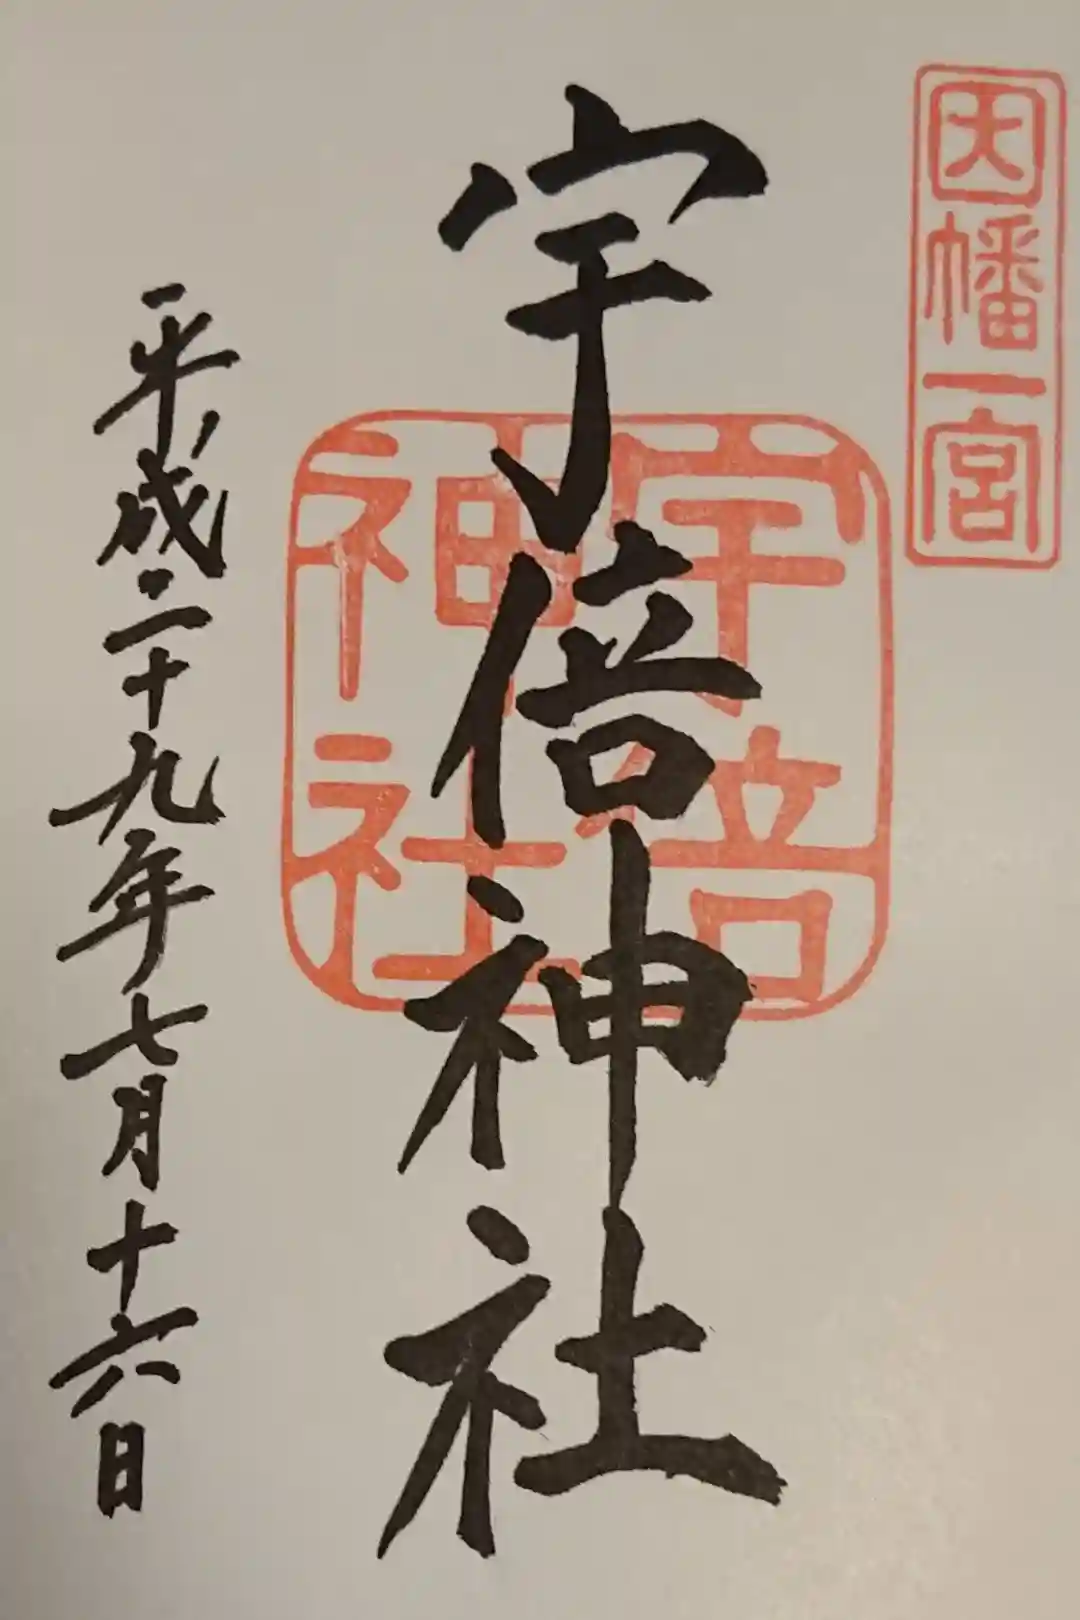 因幡一宮
宇倍神社
宇倍
神社
平成二十九年七月十六日